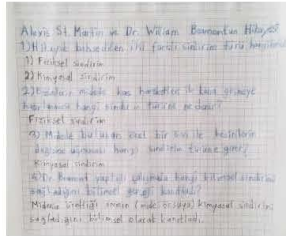 Alexis St. Martin ve Dr. William Beaumont'un Hikayesi
1) Hikayede bahsedilen iki farklı sindirim türü hangileridir
1) Fiziksel sindirim
2) Kimyasal sindirim
2) Besinlerin midede kas hareketleri ile
hangi sindirim türüne
Fiziksel sindirim
3) Midede bulunan özel bir sıvı ile besinlerin
hangi sindirim türüne girer?
Kimyasal sindirim
4) Dr. Beaumont yaptığı çalışmada hangi bilimsel
bilimsel kanıtladı?
Midenin ürettiği sıvının (mide özsuyu) kimyasal sindirim
sağladığını bilimsel olarak kanıtladı.